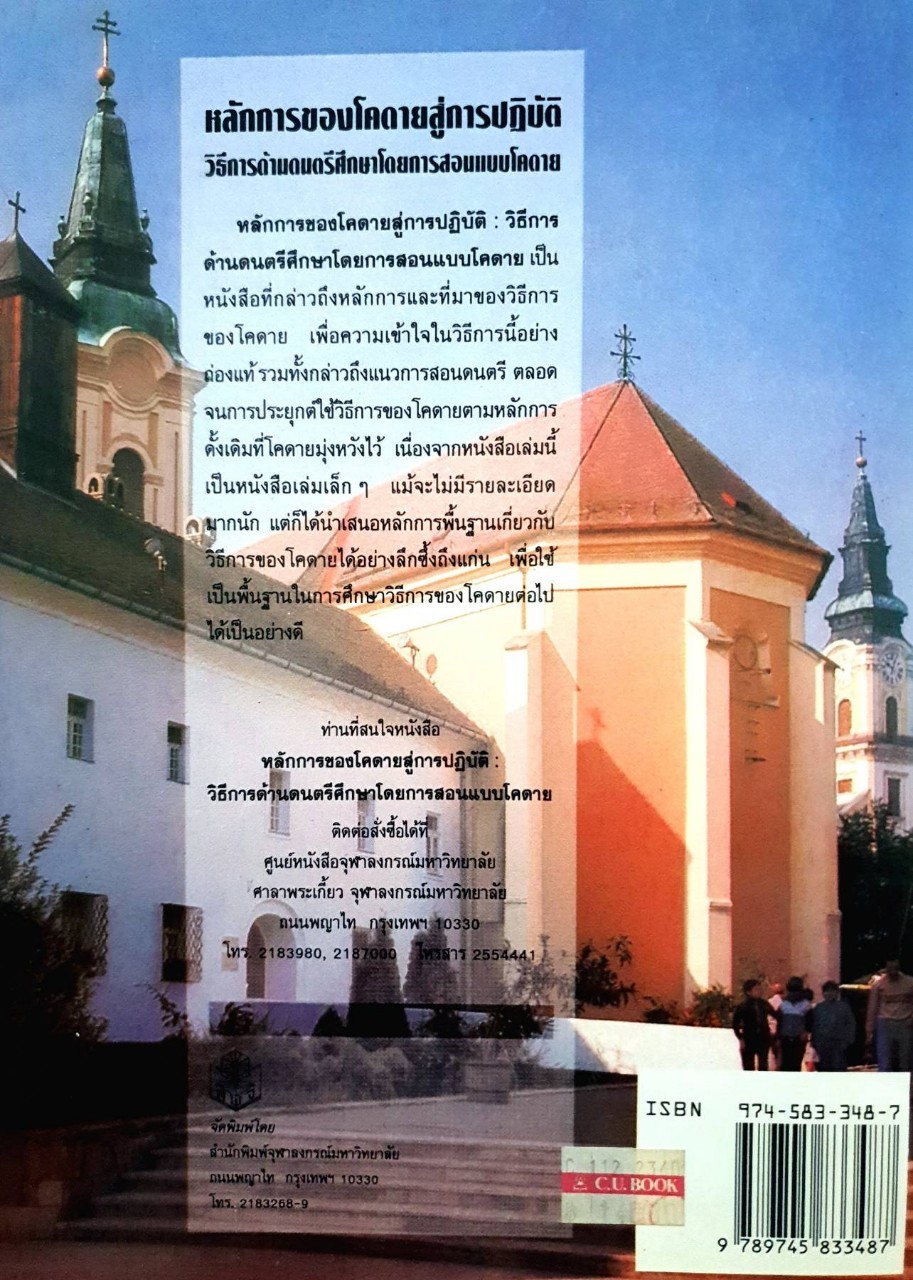 หลักการของโคดายสู่การปฏิบัติ
วิธีการด้านดนตรีศึกษาโดยการสอนแบบโคดาย
หลักการของโคดายสู่การปฏิบัติ : วิธีการ
ด้านดนตรีศึกษาโดยการสอนแบบโคดาย เป็น
หนังสือที่กล่าวถึงหลักการและที่มาของวิธีการ
ของโคดาย เพื่อความเข้าใจในวิธีการนี้อย่าง
ถ่องแท้ รวมทั้งกล่าวถึงแนวการสอนดนตรี ตลอด
จนการประยุกต์ใช้วิธีการของโคดายตามหลักการ
ดั้งเดิมที่โคดายมุ่งหวังไว้ เนื่องจากหนังสือเล่มนี้
เป็นหนังสือเล่มเล็ก ๆ แม้จะไม่มีรายละเอียด
มากนัก แต่ก็ได้นำเสนอหลักการพื้นฐานเกี่ยวกับ
วิธีการของโคดายได้อย่างลึกซึ้งถึงแก่น เพื่อใช้
เป็นพื้นฐานในการศึกษาวิธีการของโคดายต่อไป
ได้เป็นอย่างดี
ท่านที่สนใจหนังสือ
หลักการของโคดายสู่การปฏิบัติ :
วิธีการด้านดนตรีศึกษาโดยการสอนแบบโคดาย
ติดต่อสั่งซื้อได้ที่
ศูนย์หนังสือจุฬาลงกรณ์มหาวิทยาลัย
ศาลาพระเกี้ยว จุฬาลงกรณ์มหาวิทยาลัย
ถนนพญาไท กรุงเทพฯ 10330
โทร. 2183980, 2187000 โทรสาร 2554441
จัดพิมพ์โดย
สำนักพิมพ์จุฬาลงกรณ์มหาวิทยาลัย
ถนนพญาไท กรุงเทพฯ 10330
โทร. 2183268-9
C.U. BOOK
ISBN 974-583-348-7
9 789745 833487